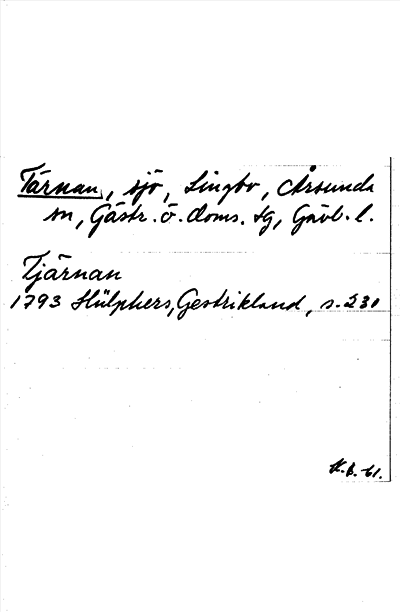 Tärnan, sjö, Lingbo, Årsunda
sn, Gästr. ö. doms. tg, Gävl. l.
Tjärnan
1793 Hülphers, Gestrikland, s. 230
K.B. 61.